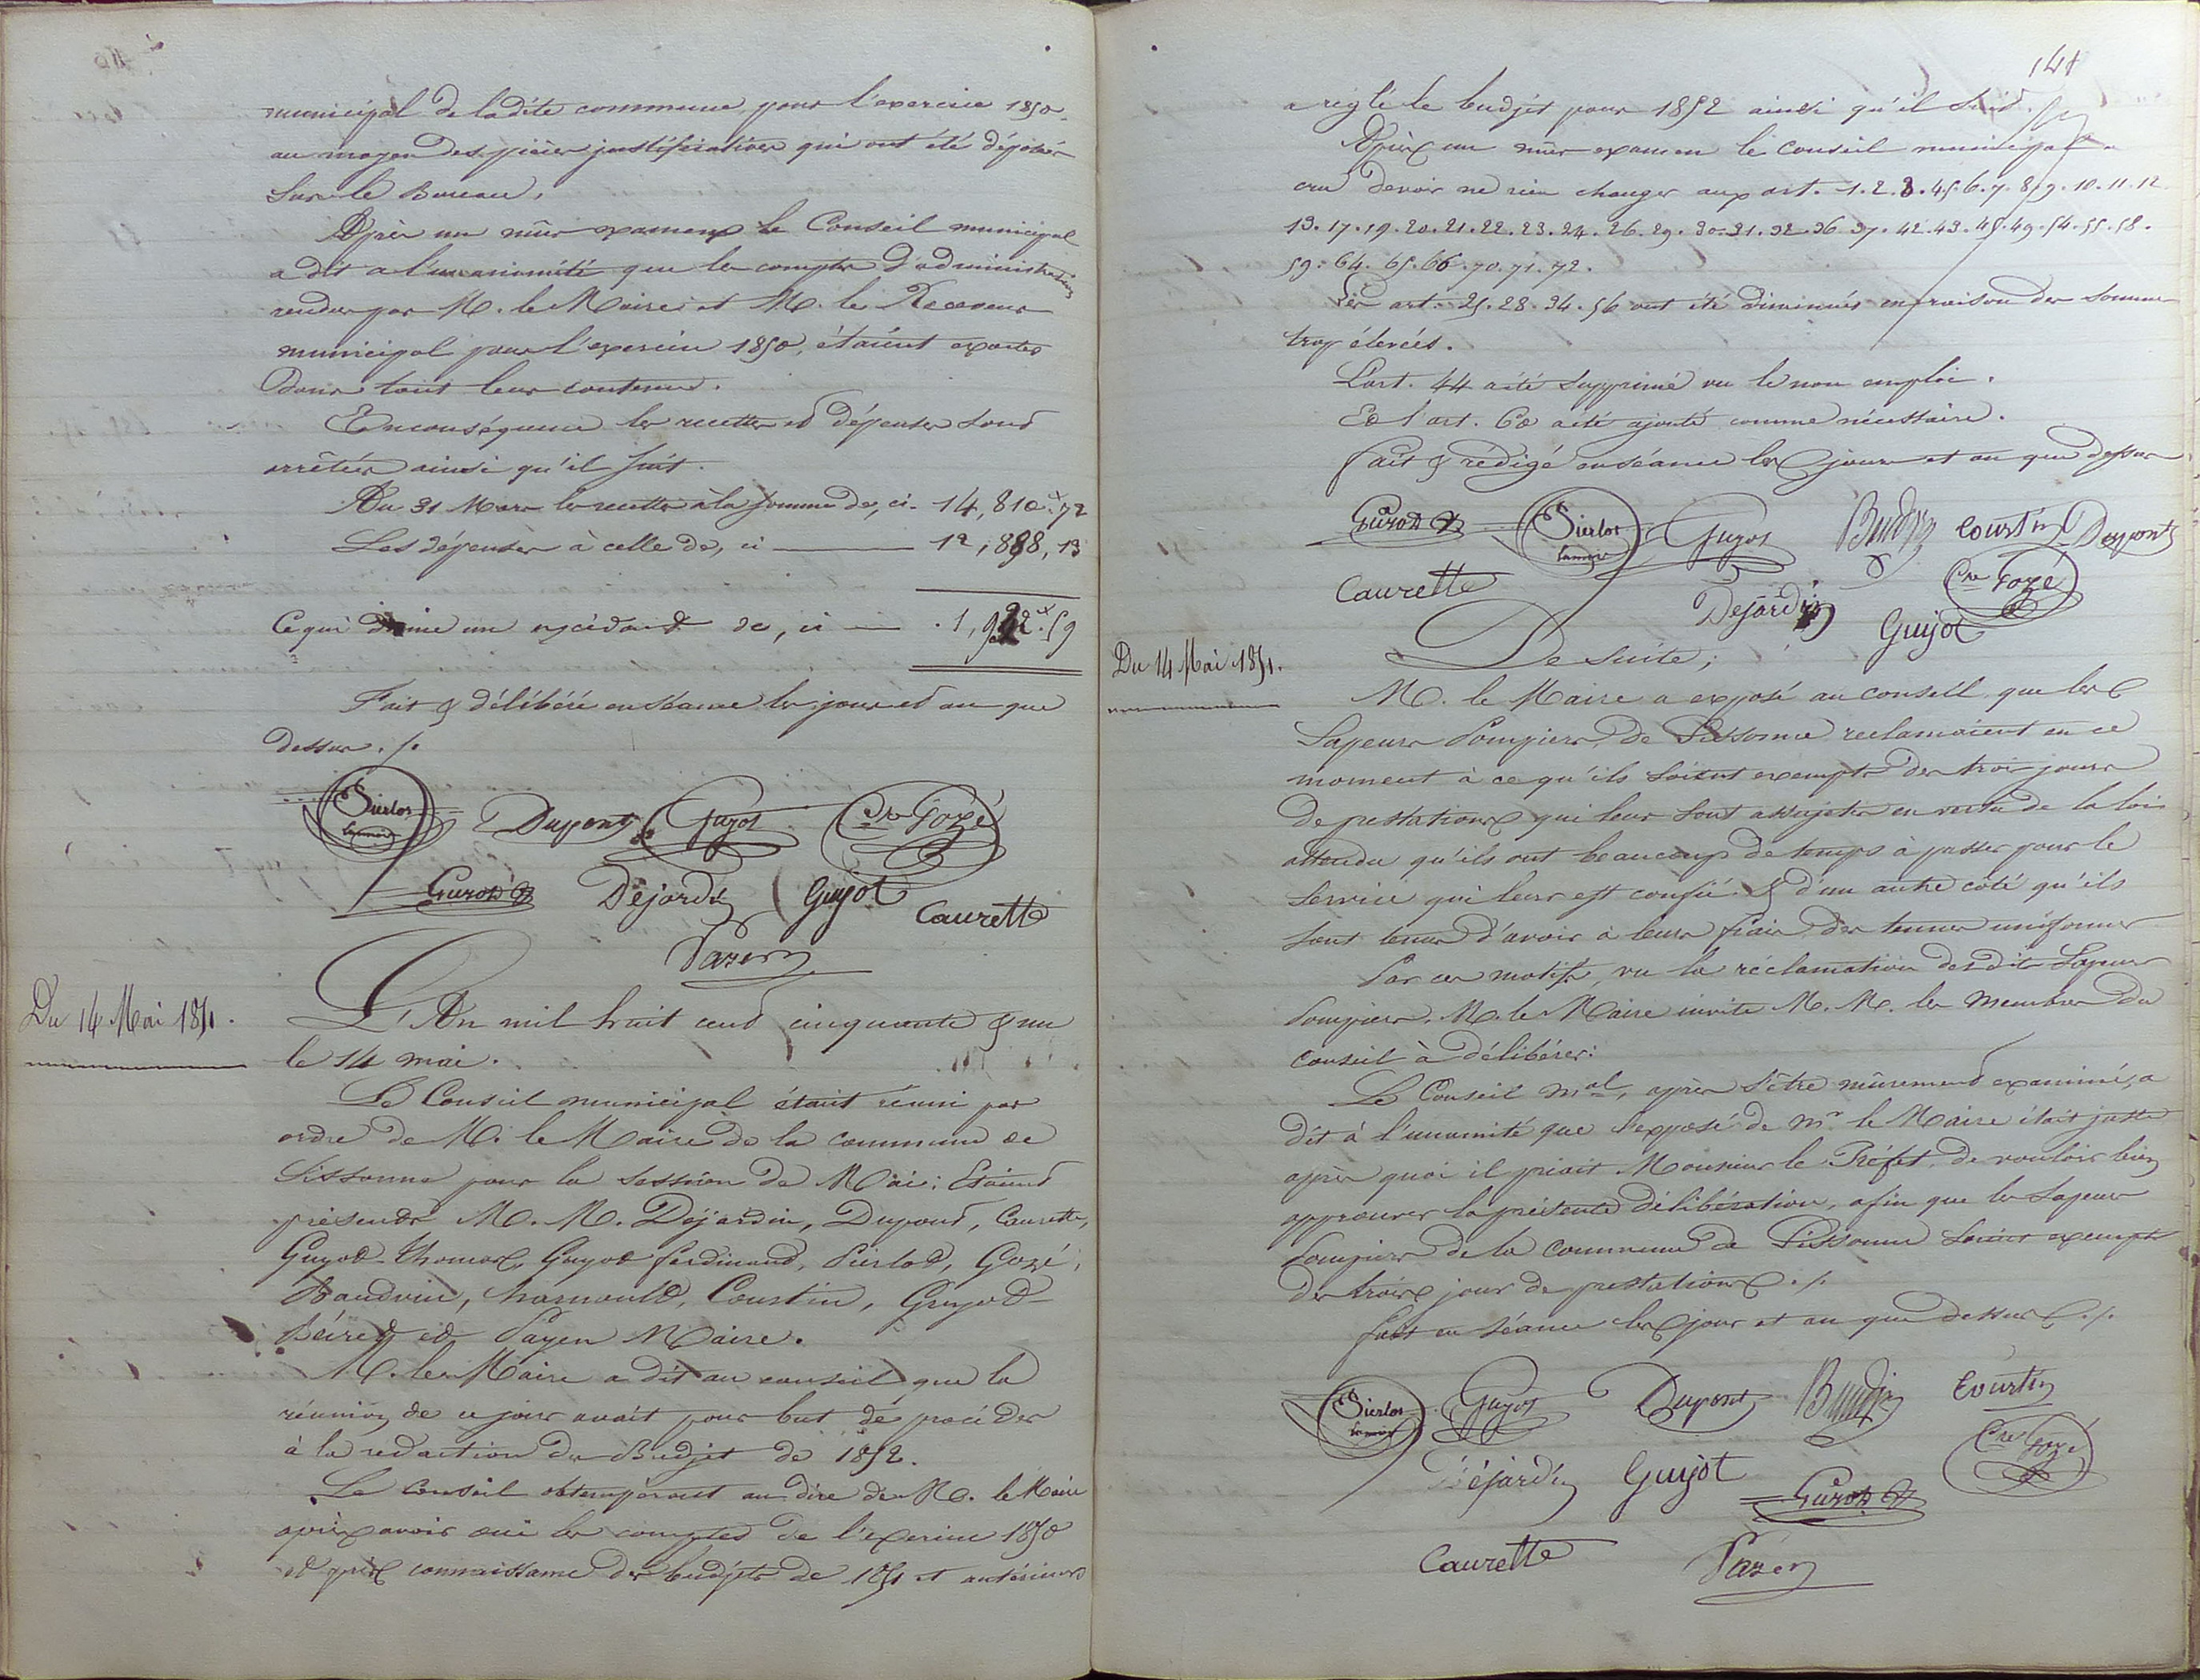 municipal de ladite commune, pour l'exercice 1850
au moyen des pièces justificatives qui ont été déposés
sur le Bureau.
Après un mûr examen le Conseil municipal
a dit a l'unanimité que les comptes d'administration
rendus par M. le Maire et M. le Receveur
municipal pour l'exercice 1850, étaient exactes
dans tout leur contenu.
En conséquence les recettes et dépenses sont
arrêtées ainsi qu'il suit.
Au 31 Mars les recettes à la somme de, ci - 14,810f.72
Les dépenses à celle de, ci — 12,888,13
Ce qui donne un excédant de, ci — 1,922f.59
Fait & délibéré en séance les jour et an que
dessus ./.
Pierlot
Lamort
Dupont
Guyot
Cre Gozé
Guiot
Dejardin
Guyot
Caurette
Payen
Du 14 Mai 1851.
L'An mil huit cent cinquante & un
le 14 mai.
Le Conseil municipal était réuni par
ordre de M. le Maire de la commune de
Sissonne pour la session de Mai: Etaient
présents M. M. Dejardin, Dupont, Caurette,
Guyot Thomas, Guyot ferdinand, Pierlot, Gozé,
Baudoin, Courtin, Guyot
et Payen Maire.
M. le Maire a dit au conseil que la
réunion de ce jour avait pour but de procéder
à la redaction du Budjet de 1852.
Le Conseil obtempérant au dire de M. le Maire
après avoir oui les comptes de l'exercice 1850
et pris connaissance des budjets de 1851 et antérieurs
141
a réglé le budjet pour 1852 ainsi qu'il suit.
Après un mûr examen le Conseil municipal a
cru devoir ne rien changer aux art. 1.2.3.4.5.6.7.8.9.10.11.12
13.17.19.20.21.22.23.24.26.29.30.31.32.36.37.42.43.48.49.54.55.58.
59.64.65.66.70.71.72.
Les art. 25.28.34.56 ont été diminués en raison des sommes
trop élevées.
L'art. 44 a été supprimé vu le non emploi.
Et l'art. 60 a été ajouté comme nécessaire.
fait & rédigé en séance les jour et an que dessus
Guiot
Pierlot
Lamort
Guyot
Baudoin
Courtin
Dupont
Caurette
Dejardin
Cre Gozé
Guyot
Du 14 Mai 1851.
De suite;
M. le Maire a exposé au conseil que les
Sapeurs Pompiers de Sissonne reclamaient en ce
moment à ce qu'ils soient exempts des trois jours
de prestations qui leur sont assujetis en vertu de la loi
attendu qu'ils ont beaucoup de temps à passer pour le
service qui leur est confié & d'un autre côté qu'ils
sont tenus d'avoir à leurs frais des tenues uniformes
Par ces motifs, vu la réclamation desdits Sapeurs
Pompiers, M. le Maire invite M. M. les Membres du
conseil à délibérer:
Le Conseil mal, après s'être mûrement examiné, a
dit à l'unamité que l'exposé de Mr le Maire était juste
après quoi il priait Monsieur le Préfet de vouloir bien
approuver la présente délibération, afin que les Sapeurs
Pompiers de la commune de Sissonne soient exempts
des trois jours de prestations ./.
fait en séance les jour et an que dessus ./.
Pierlot
Lamort
Guyot
Dupont
Baudoin
Courtin
Dejardin
Guyot
Guiot
Cre Gozé
Caurette
Payen